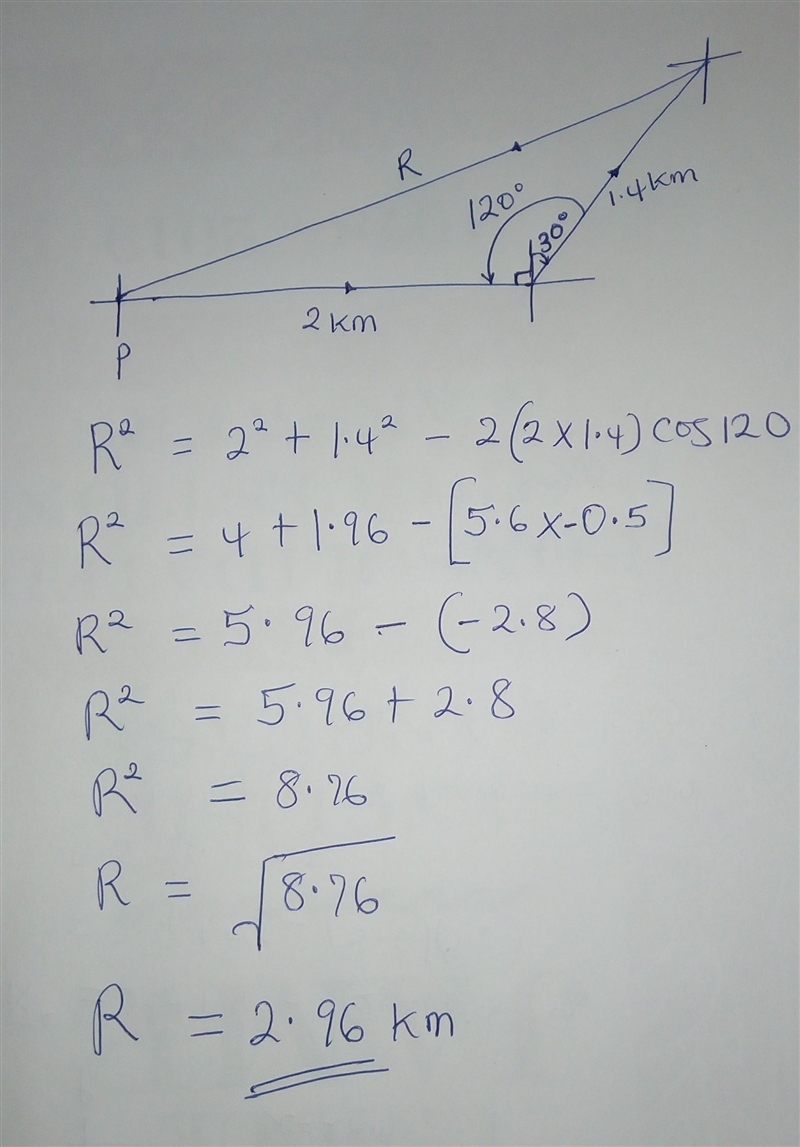 R
120°
30°
1.4km
2km
P
R² = 2² + 1.4² - 2(2x1.4)cos120
R² = 4 + 1.96 - [5.6x-0.5]
R² = 5.96 - (-2.8)
R² = 5.96 + 2.8
R² = 8.76
R = √8.76
R = 2.96 km